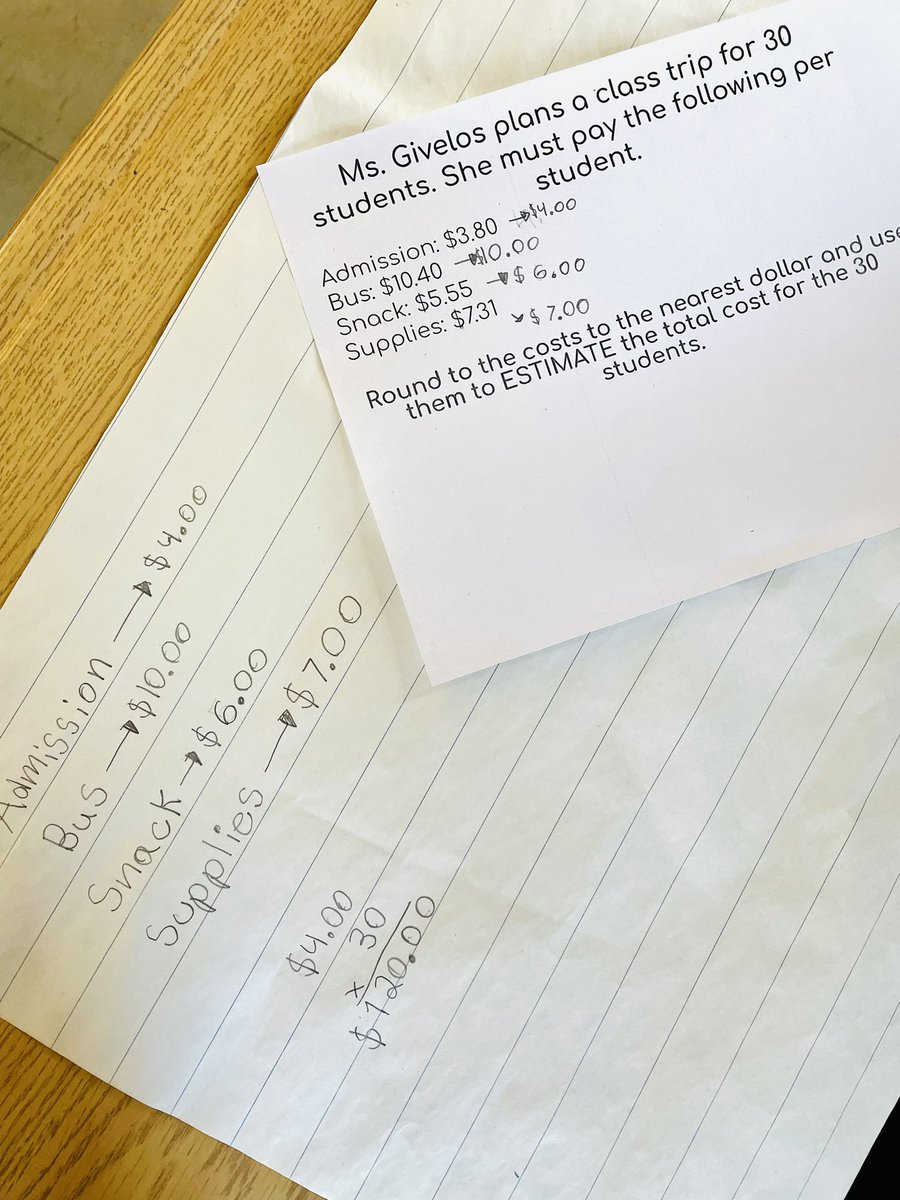 Ms. Givelos plans a class trip for 30
students. She must pay the following per
student.
Admission: $3.80 → $4.00
Bus: $10.40 → $10.00
Snack: $5.55 → $6.00
Supplies: $7.31 → $7.00
Round to the costs to the nearest dollar and use
them to ESTIMATE the total cost for the 30
students.
Admission → $4.00
Bus → $10.00
Snack → $6.00
Supplies → $7.00
$4.00
x 30
$120.00